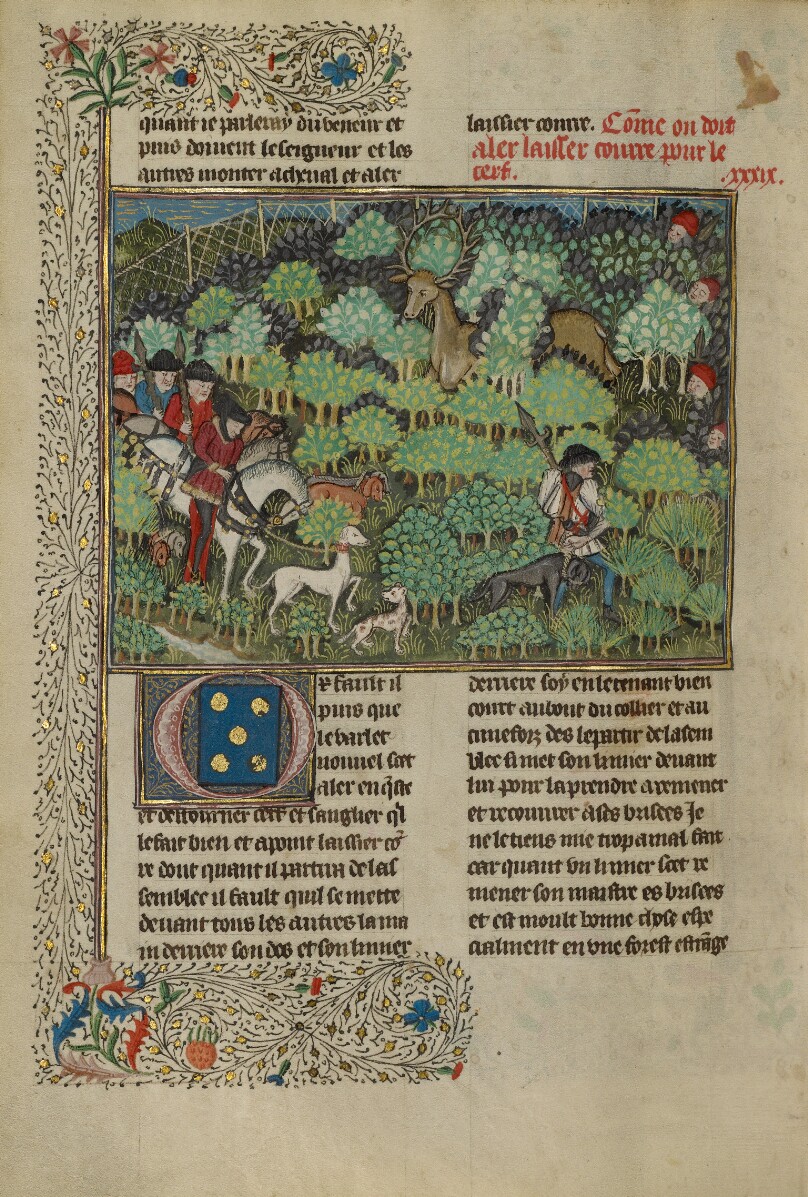 quant ie parleray du veneur et
puis doiuent le seigneur et les
autres monter a cheual et aler
laissier courre. Cōme on doit
aler laisser courre pour le
cerf. .xxxix.
Or fault il
puis que
le varlet
nouuel scet
aler en q̄ste
et destourner cerf et sanglier q̄l
le fait bien et a point laissier cō
re dont quant il partira de las
semblee il fault quil se mette
deuant tous les autres la ma
in derriere son dos et son limier
derriere soy en le tenant bien
court au bout du collier et au
cunefoiz des le partir de lasem
blee si met son limier deuant
lui pour laprendre a remener
et recouurer a ses brisees Je
ne le tiens mie trop a mal fait
car quant vn limier scet re
mener son maistre es brisees
et est moult bonne chose espe
cialment en vne forest estrāge